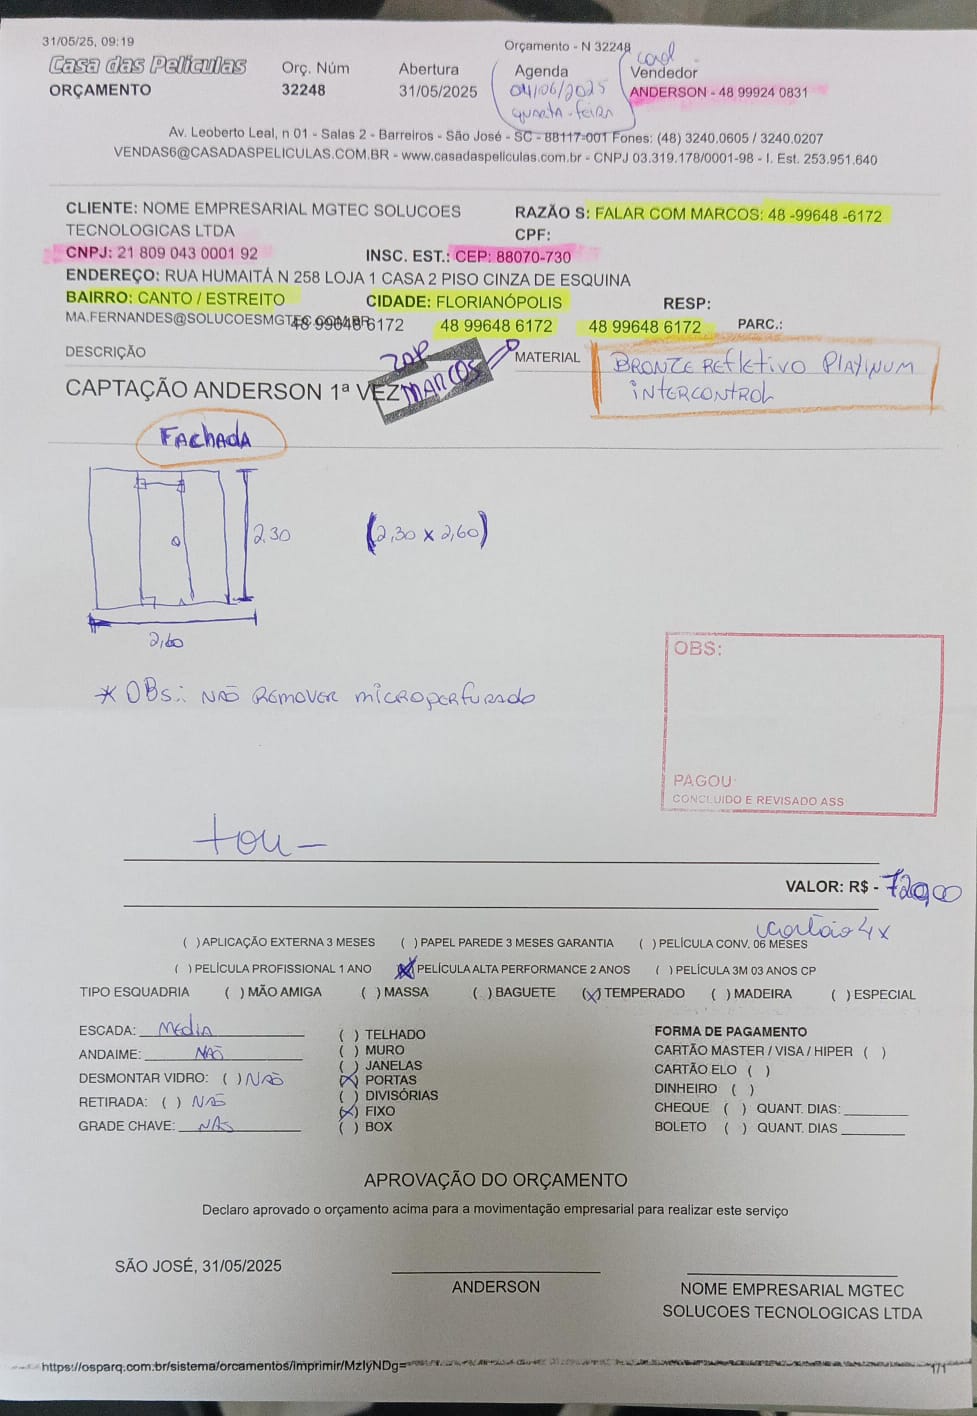 31/05/25, 09:19
Orçamento - N 32248
Casa das Películas
Orç. Núm
Abertura
Agenda
Vendedor
ORÇAMENTO
32248
31/05/2025
04/06/2025
ANDERSON - 48 99924 0831
quarta-feira
Av. Leoberto Leal, n 01 - Salas 2 - Barreiros - São José - SC - 88117-001 Fones: (48) 3240.0605 / 3240.0207
VENDAS6@CASADASPELICULAS.COM.BR - www.casadaspeliculas.com.br - CNPJ 03.319.178/0001-98 - I. Est. 253.951.640
CLIENTE: NOME EMPRESARIAL MGTEC SOLUCOES
TECNOLOGICAS LTDA
RAZÃO S: FALAR COM MARCOS: 48 -99648 -6172
CPF:
CNPJ: 21 809 043 0001 92
INSC. EST.: CEP: 88070-730
ENDEREÇO: RUA HUMAITÁ N 258 LOJA 1 CASA 2 PISO CINZA DE ESQUINA
BAIRRO: CANTO / ESTREITO
CIDADE: FLORIANÓPOLIS
RESP:
MA.FERNANDES@SOLUCOESMGTEC.COM.BR
48 99648 6172
48 99648 6172
48 99648 6172
PARC.:
DESCRIÇÃO
ZAP
MARCOS
MATERIAL
BRONZE REFLETIVO PLATINUM
INTERCONTROL
CAPTAÇÃO ANDERSON 1ª VEZ
FACHADA
2,30
(2,30 x 2,60)
2,60
* OBS.: NÃO REMOVER microperfurado
OBS:
PAGOU
CONCLUIDO E REVISADO ASS
VALOR: R$ - 720,00
cartão 4x
( ) APLICAÇÃO EXTERNA 3 MESES ( ) PAPEL PAREDE 3 MESES GARANTIA ( ) PELÍCULA CONV. 06 MESES
( ) PELÍCULA PROFISSIONAL 1 ANO (X) PELÍCULA ALTA PERFORMANCE 2 ANOS ( ) PELÍCULA 3M 03 ANOS CP
TIPO ESQUADRIA ( ) MÃO AMIGA ( ) MASSA ( ) BAGUETE (X) TEMPERADO ( ) MADEIRA ( ) ESPECIAL
ESCADA: MEDIA
ANDAIME: NÃO
DESMONTAR VIDRO: ( ) NÃO
RETIRADA: ( ) NÃO
GRADE CHAVE: NÃO
( ) TELHADO
( ) MURO
( ) JANELAS
(X) PORTAS
( ) DIVISÓRIAS
(X) FIXO
( ) BOX
FORMA DE PAGAMENTO
CARTÃO MASTER / VISA / HIPER ( )
CARTÃO ELO ( )
DINHEIRO ( )
CHEQUE ( ) QUANT. DIAS:
BOLETO ( ) QUANT. DIAS
APROVAÇÃO DO ORÇAMENTO
Declaro aprovado o orçamento acima para a movimentação empresarial para realizar este serviço
SÃO JOSÉ, 31/05/2025
ANDERSON
NOME EMPRESARIAL MGTEC
SOLUCOES TECNOLOGICAS LTDA
https://osparq.com.br/sistema/orcamentos/imprimir/MzIyNDg=
1/1